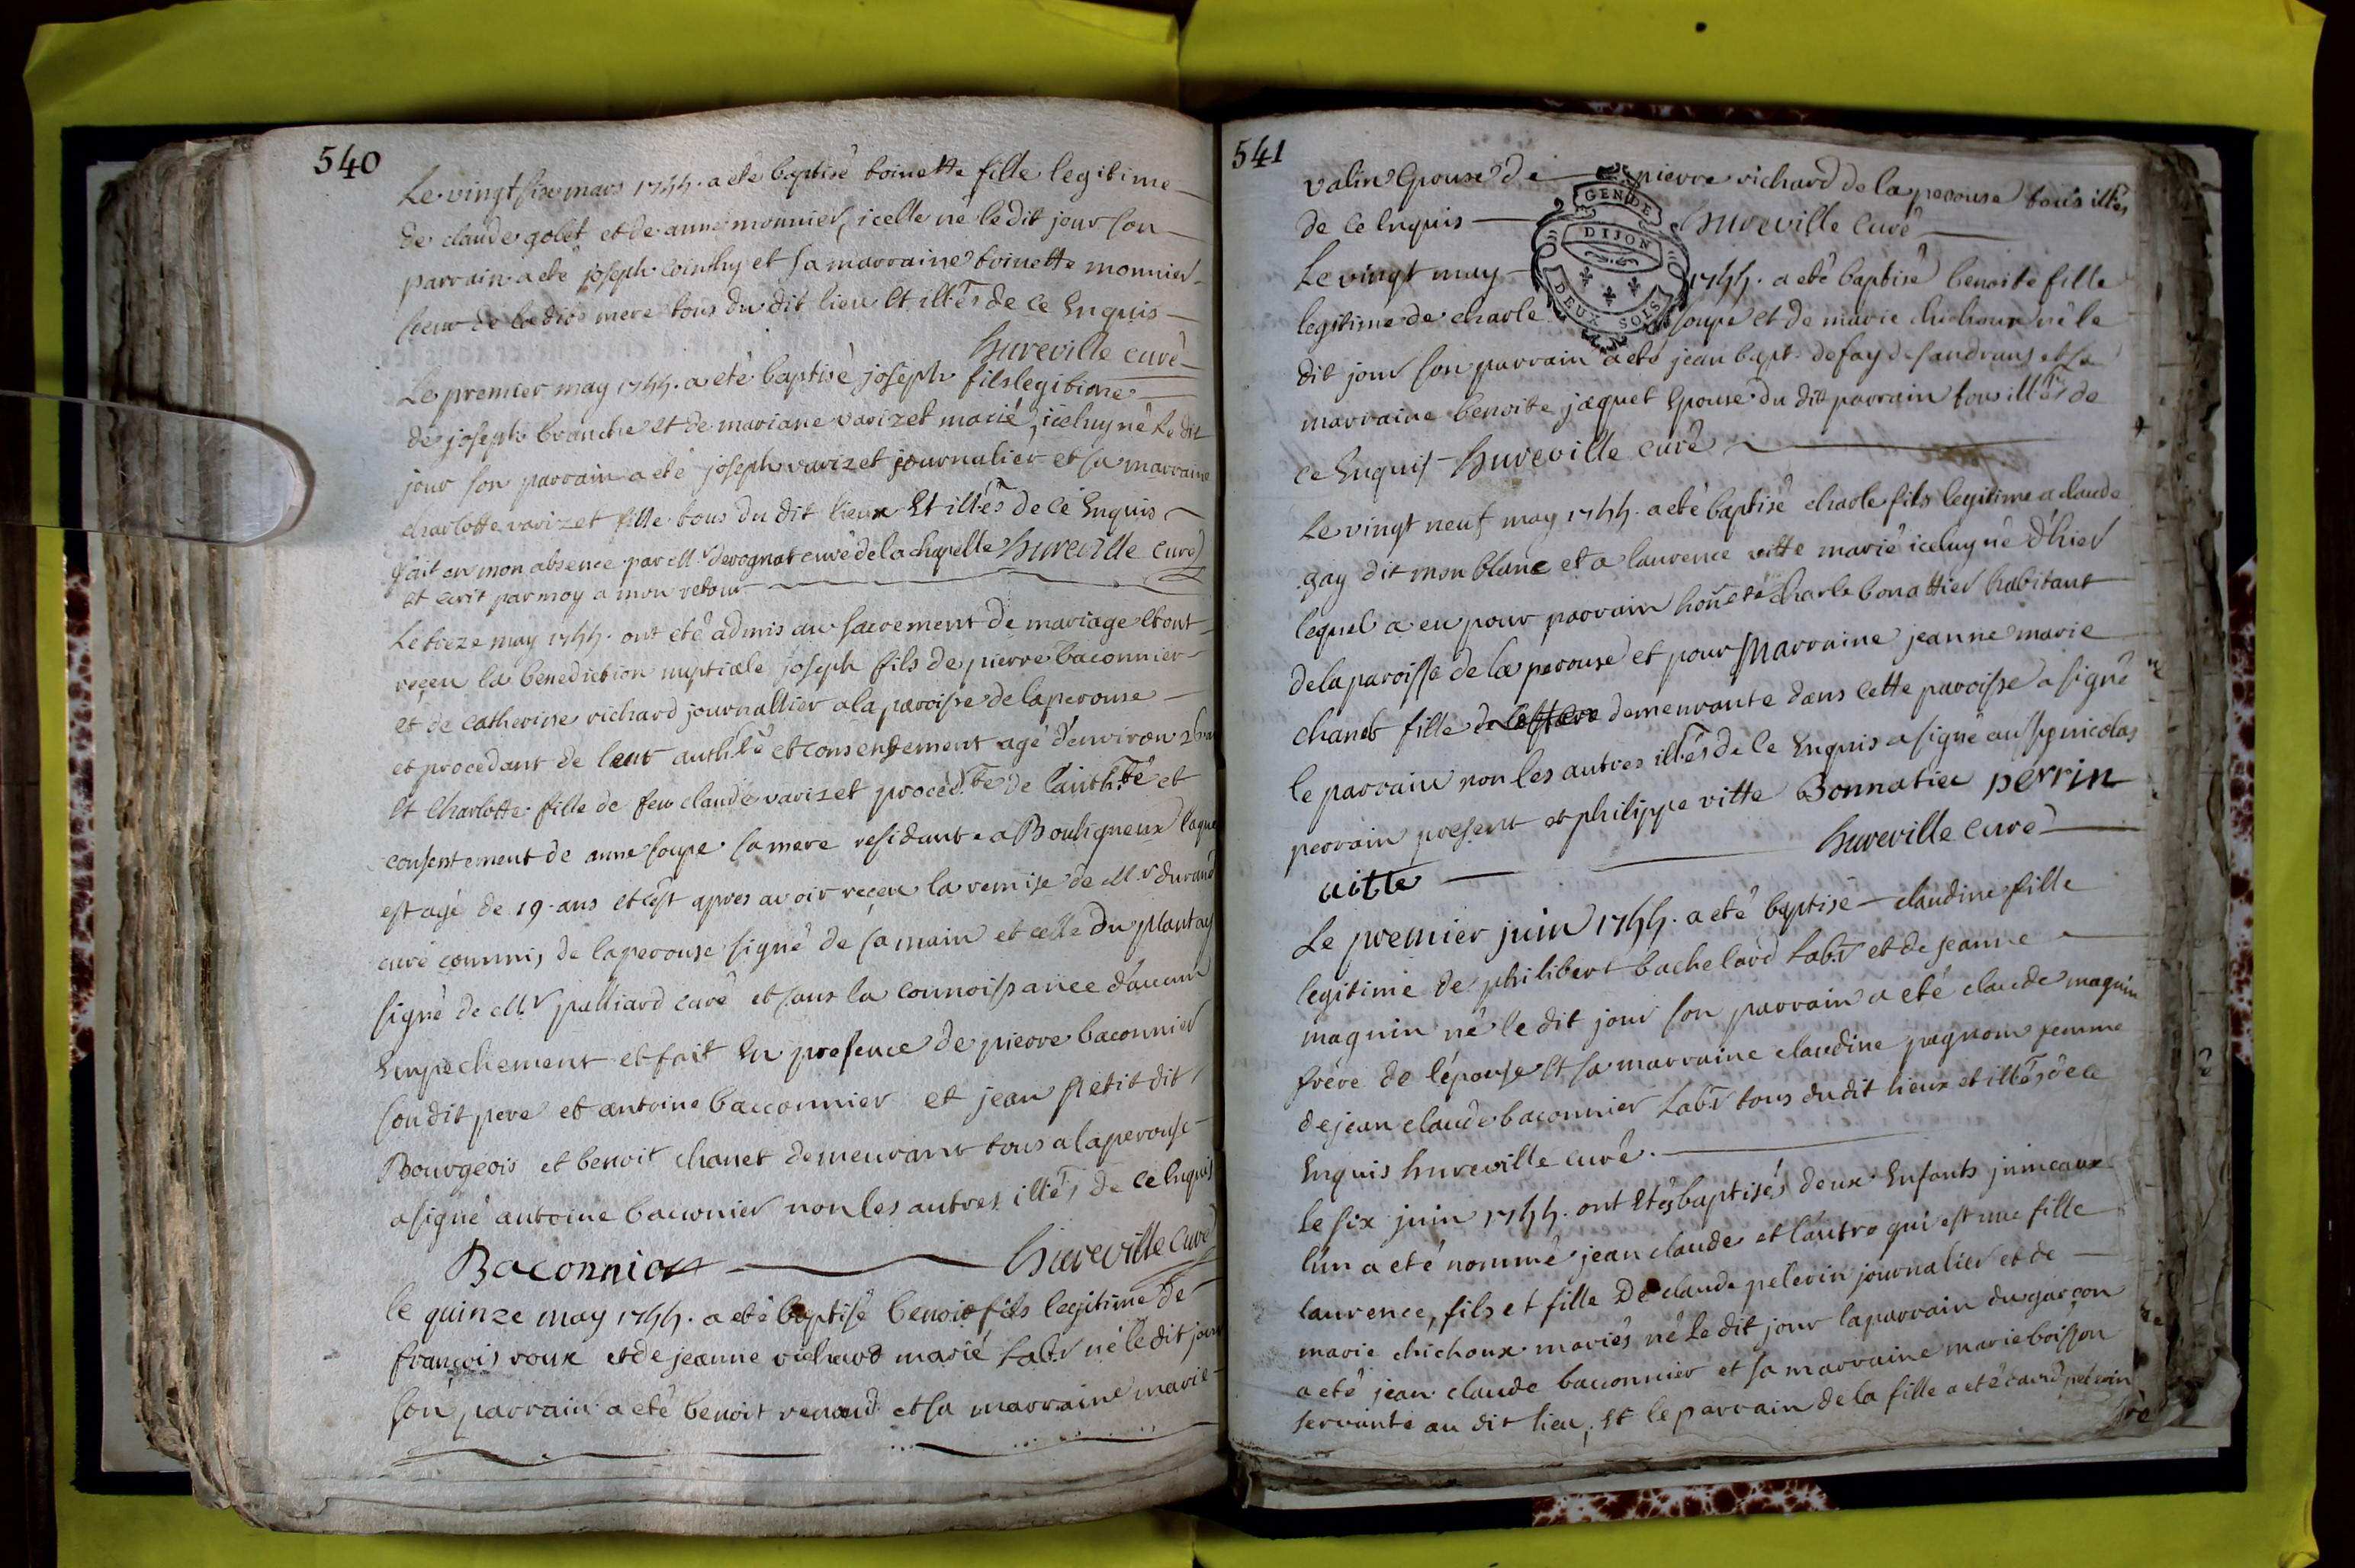 540
Le vingt six mars 1744. a eté baptisé toinette fille legitime
de claude golet et de anne monnier, icelle né le dit jour son
parrain a eté joseph cointhy et sa marraine toinette monnier
soeur de la dite mere tous du dit lieu Et illés de ce Enquis
hureville curé
Le premier may 1744. a eté baptisé joseph fils legitime
de joseph branche et de mariane varizet marié, iceluy né Le dit
jour son parrain a eté joseph varizet journalier et sa marraine
charlotte varizet fille tous du dit lieux Et illés de ce Enquis
fait en mon absence par Mr derognat curé de la chapelle hureville curé
et ecrit par moy a mon retour
Le treze may 1744. ont eté admis au sacrement de mariage et ont
reçeu la benediction nuptiale joseph fils de pierre baconnier
et de catherine richard journallier a la paroisse de laperouse
et procedant de leur authté et consentement agé d'environ
Et Charlotte fille de feu claude varizet procedte de l'authté et
consentement de anne soupe sa mere residante a Bouligneux laque
est agé de 19 ans et c'est apres avoir reçeu la remise de Mr durand
curé commis de laperouse signé de sa main et celle du plantay
signé de Mr palliard curé et sans la connoissance d'aucun
Empechement et fait En presence de pierre baconnier
son dit pere et antoine bacconnier et jean petit dit
Bourgeois et benoit chanet demeurant tous a laperouse
a signé antoine baconnier non les autres illés de ce Enquis
Baconnier hureville curé
le quinze may 1744. a eté baptisé benoit fils legitime de
françois roux et de jeanne richard marié Labr né le dit jour
son parrain a eté benoit renaud et sa marraine marie
541
valin Epouse de pierre richard de la perouse tous illés
de ce Enquis hureville curé
GEN DE
DIJON
DEUX SOLS
Le vingt may 1744. a eté baptisé benoite fille
legitime de charle soupe et de marie chichoux né le
dit jour son parrain a eté jean bapt. defay de sandrans et sa
marraine benoite jaquet Epouse du dit parrain tous illés de
ce Enquis hureville curé
Le vingt neuf may 1744. a eté baptisé charle fils legitime a claude
gay dit mon blanc et a laurence vitte marié iceluy né d'hier
lequel a eu pour parrain honeté charle bonattier habitant
de la paroisse de la perouse et pour Marraine jeanne marie
chanet fille demeurante dans cette paroisse a signé
le parrain non les autres illés de ce Enquis a signé aussy nicolas
perrain present et philippe vitte Bonnatier perrin
hureville curé
vitte
Le premier juin 1744. a eté baptisé claudine fille
legitime de philibert bachelard Labr et de jeanne
maguin né le dit jour son parrain a eté claude maguin
frére de l'épouse Et sa marraine claudine pagnom femme
de jean claude baconnier Labr tous du dit lieux et illés de ce
Enquis hureville curé.
Le six juin 1744. ont etés baptisés deux Enfants jumeaux
l'un a eté nommé jean claude et l'autre qui est une fille
laurence, fils et fille De claude pelerin journalier et de
marie chichoux mariés né Le dit jour la parrain du garçon
a eté jean claude baconnier et sa marraine marie boisson
servante au dit lieu, Et le parrain de la fille a eté pelerin